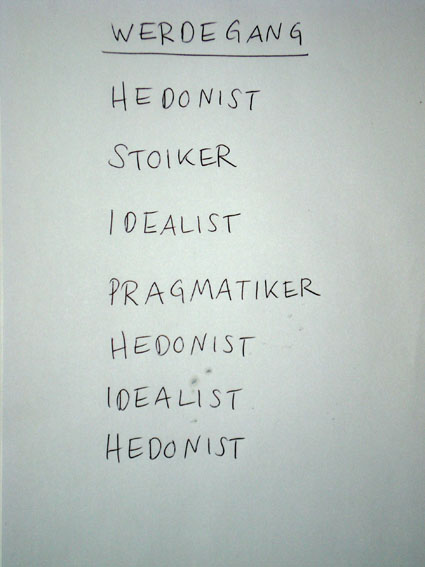 WERDEGANG
HEDONIST
STOIKER
IDEALIST
PRAGMATIKER
HEDONIST
IDEALIST
HEDONIST